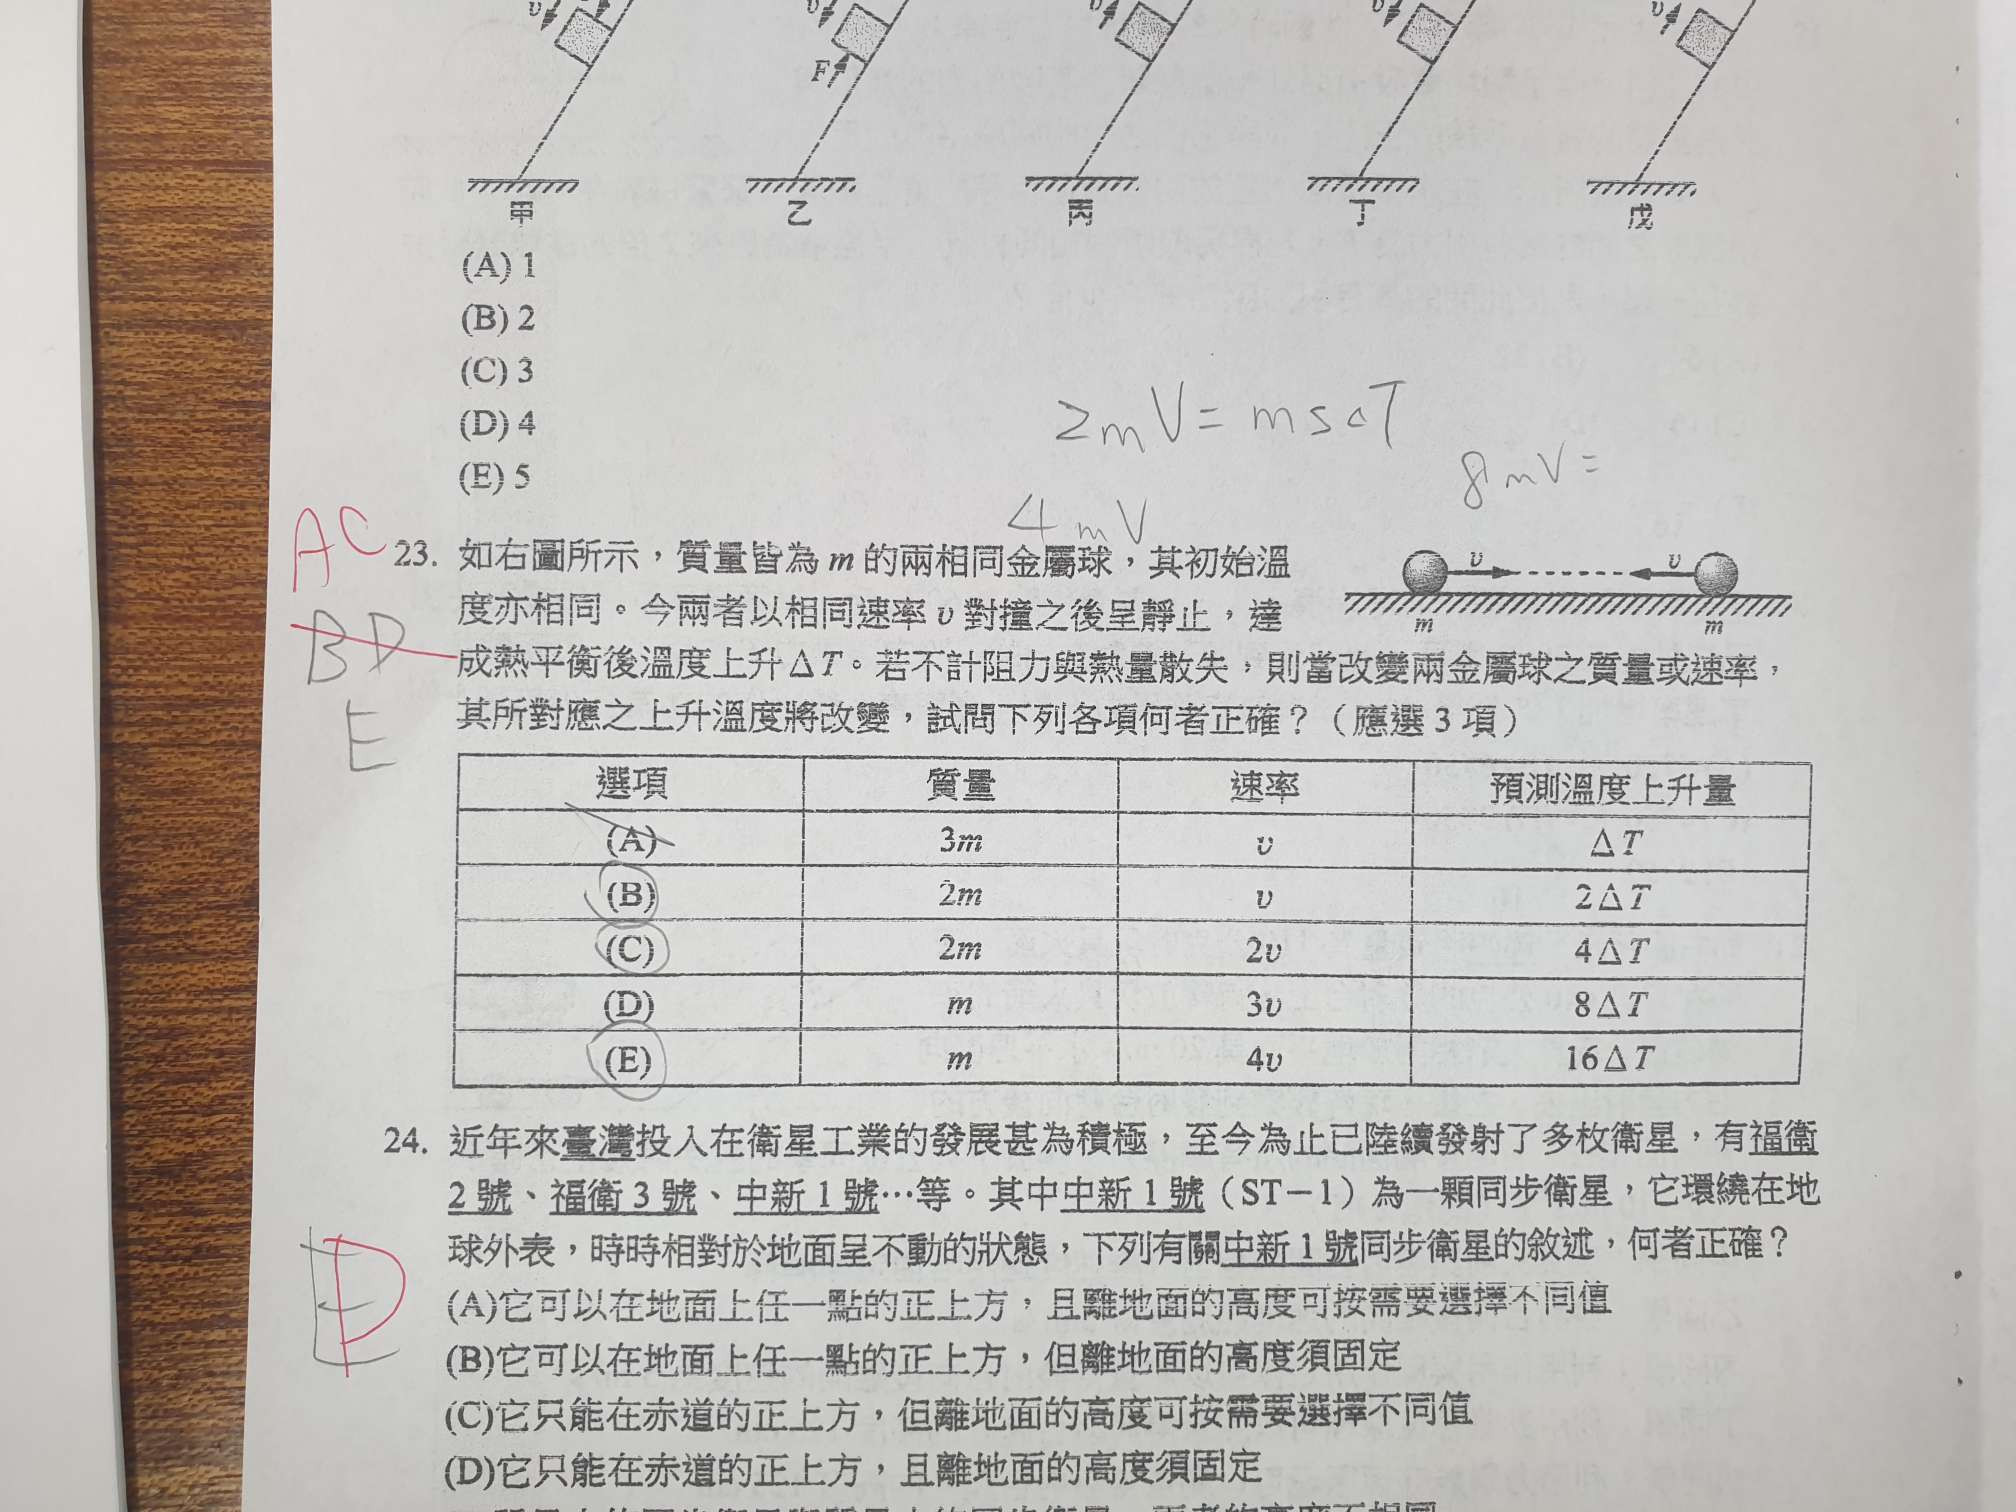 υ υ υ υ υ
F
甲 乙 丙 丁 戊
(A) 1
(B) 2
(C) 3
(D) 4
(E) 5
2mV = msΔT
8mV =
4mV
AC
BD
E
23. 如右圖所示，質量皆為 m 的兩相同金屬球，其初始溫
度亦相同。今兩者以相同速率 υ 對撞之後呈靜止，達
成熱平衡後溫度上升 ΔT。若不計阻力與熱量散失，則當改變兩金屬球之質量或速率，
其所對應之上升溫度將改變，試問下列各項何者正確？（應選 3 項）
υ υ
m m
選項 質量 速率 預測溫度上升量
(A) 3m υ ΔT
(B) 2m υ 2ΔT
(C) 2m 2υ 4ΔT
(D) m 3υ 8ΔT
(E) m 4υ 16ΔT
E
D
24. 近年來臺灣投入在衛星工業的發展甚為積極，至今為止已陸續發射了多枚衛星，有福衛
2 號、福衛 3 號、中新 1 號…等。其中中新 1 號（ST－1）為一顆同步衛星，它環繞在地
球外表，時時相對於地面呈不動的狀態，下列有關中新 1 號同步衛星的敘述，何者正確？
(A)它可以在地面上任一點的正上方，且離地面的高度可按需要選擇不同值
(B)它可以在地面上任一點的正上方，但離地面的高度須固定
(C)它只能在赤道的正上方，但離地面的高度可按需要選擇不同值
(D)它只能在赤道的正上方，且離地面的高度須固定